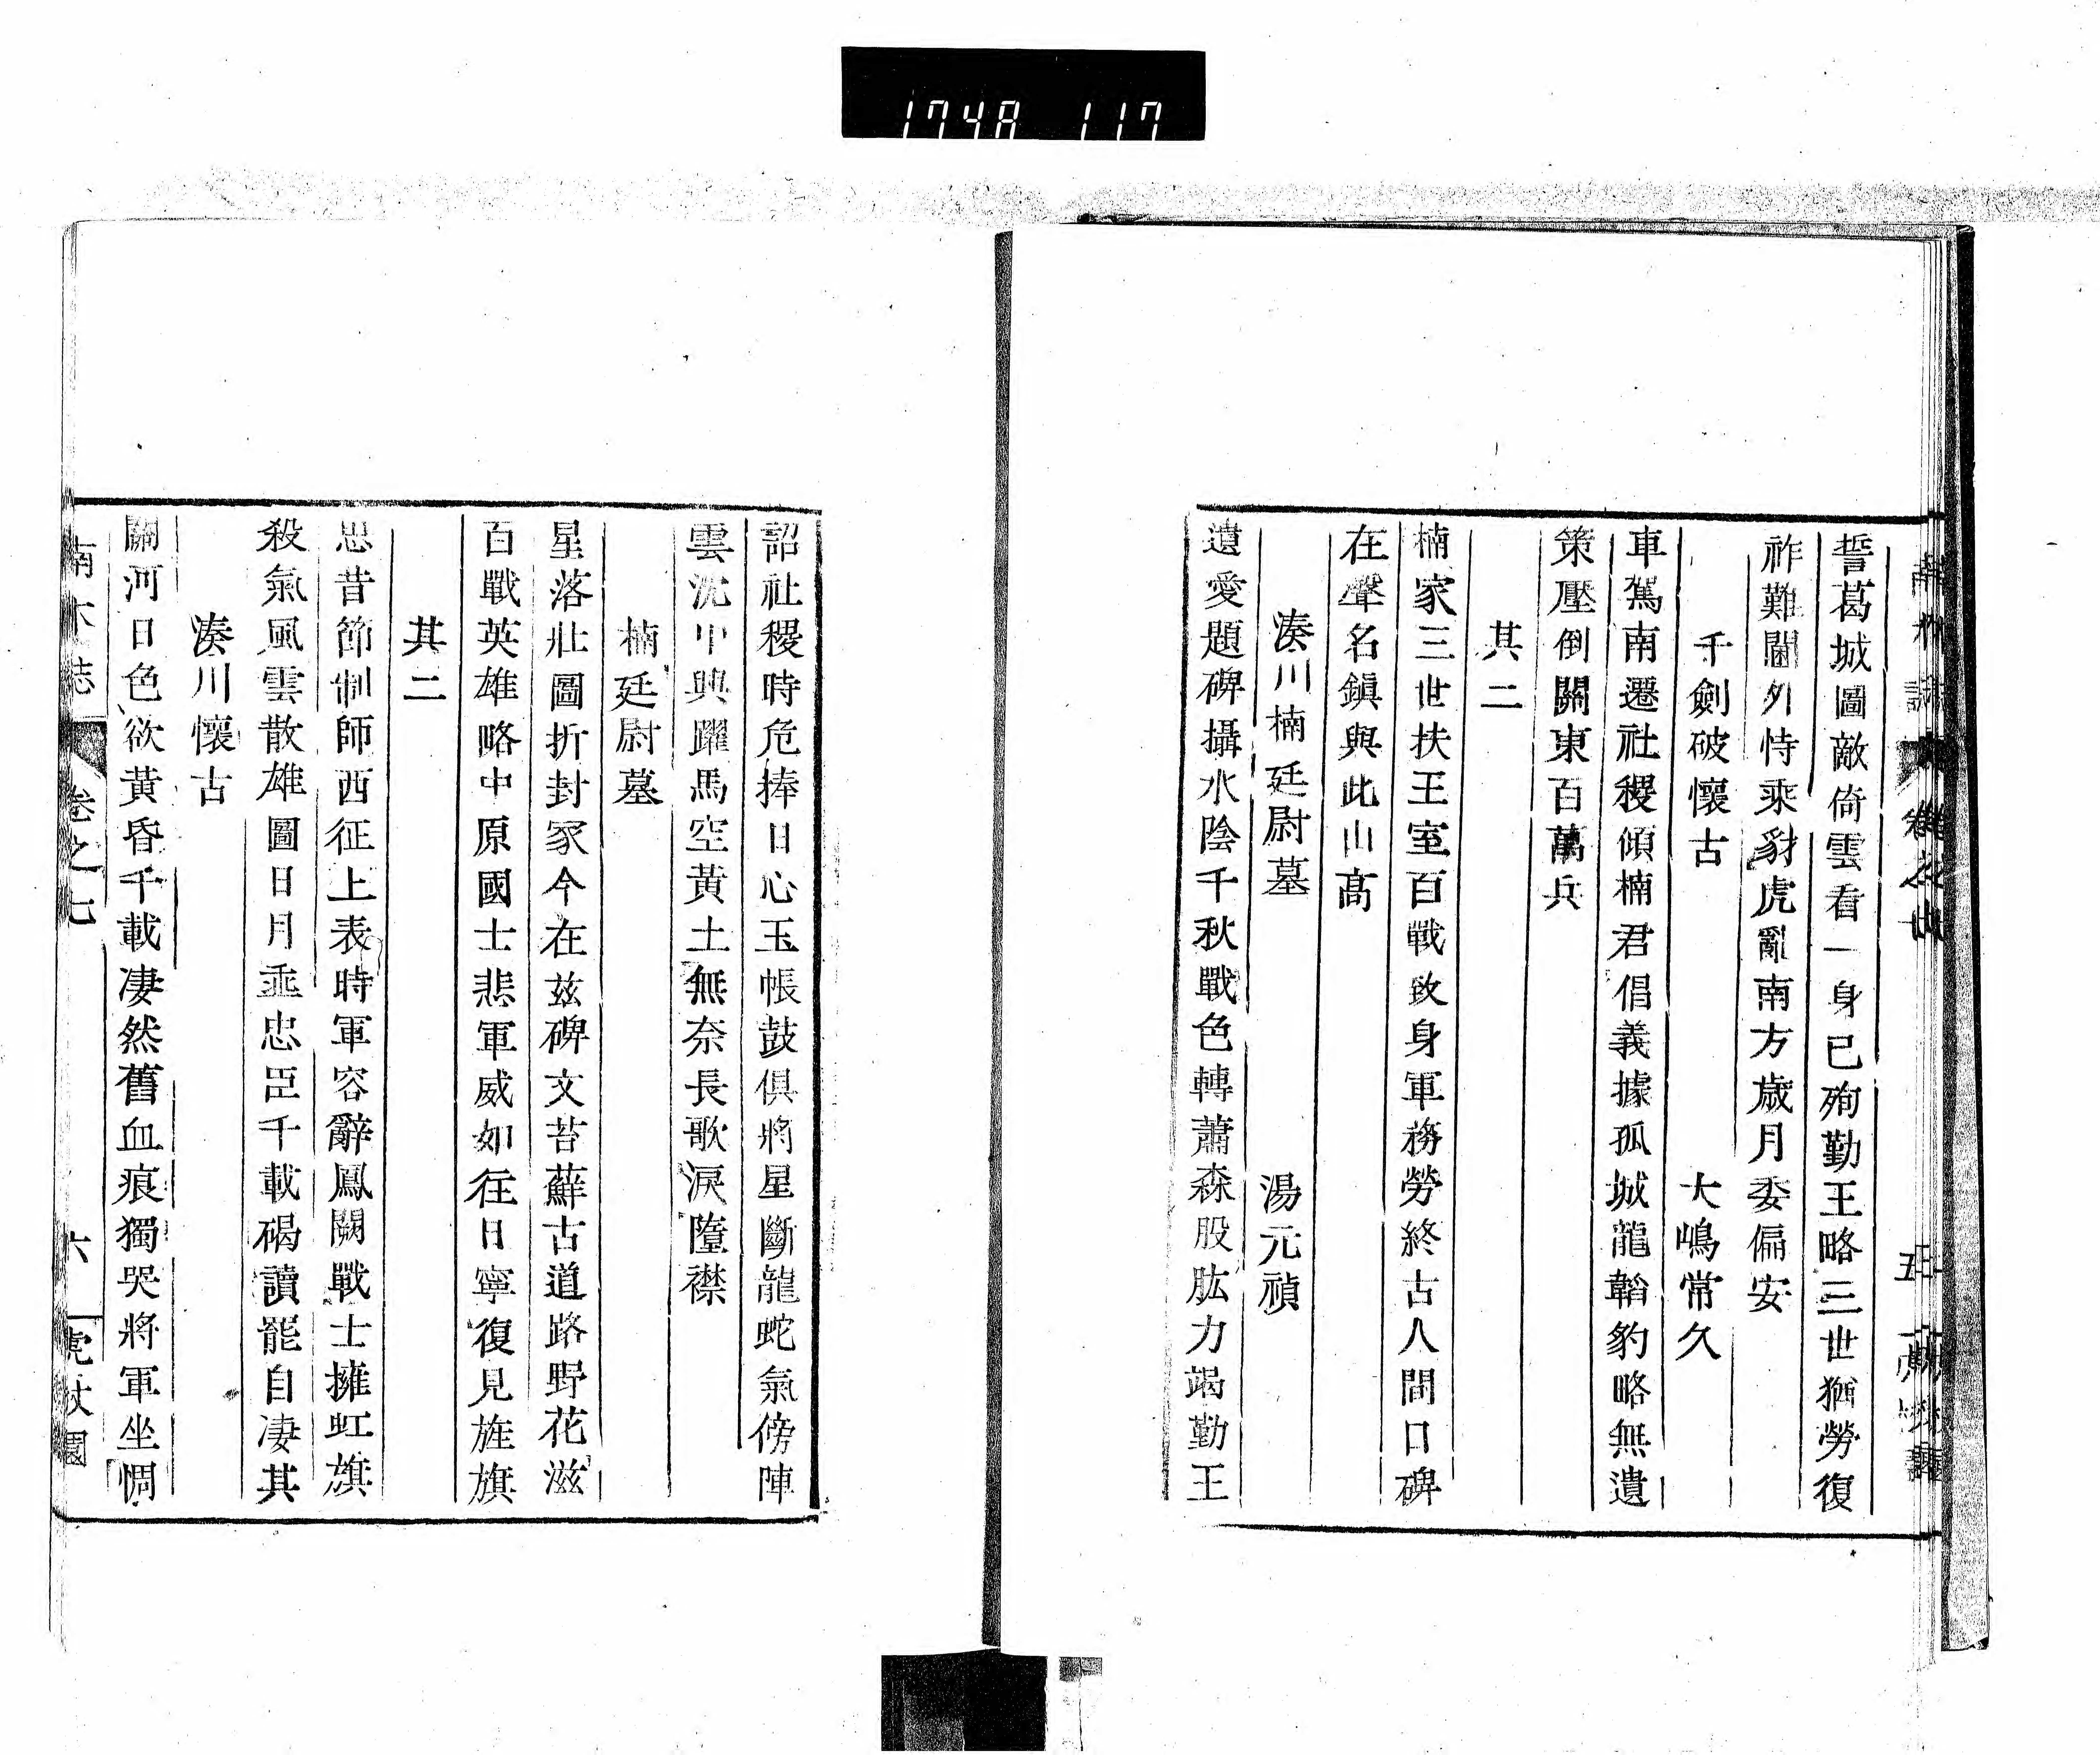 1748 117
誓葛城圖敵倚雲看一身已殉勤王略三世猶勞復
祚難閫外恃乘豺虎亂南方歲月委偏安
千劍破懷古 大嶋常久
車駕南遷社稷傾楠君倡義據孤城龍韜豹略無遺
策壓倒關東百萬兵
其二
楠家三世扶王室百戰致身軍務勞終古人間口碑
在聲名鎮與此山高
湊川楠廷尉墓 湯元禎
遺愛題碑攝水陰千秋戰色轉蕭森股肱力竭勤王
詔社稷時危捧日心玉帳鼓俱將星斷龍蛇氣傍陣
雲沈中興躍馬空黃土無奈長歌淚墮襟
楠廷尉墓
星落壯圖折封冢今在茲碑文苔蘚古道路野花滋
百戰英雄略中原國士悲軍威如往日寧復見旌旗
其二
思昔節制師西征上表時軍容辭鳳闕戰士擁虹旗
殺氣風雲散雄圖日月垂忠臣千載碣讀罷自凄其
湊川懷古
關河日色欲黃昏千載凄然舊血痕獨哭將軍坐惆
南木誌 卷之七 六 虎杖園